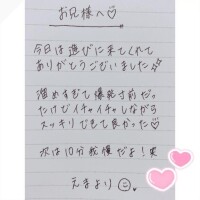 お兄様へ♡
今日は遊びに来てくれて
ありがとうございました
溜めすぎて爆発寸前だった。
だけどイチャイチャしながら
スッキリできて良かった♡
次は10分我慢だよ！笑
えまより